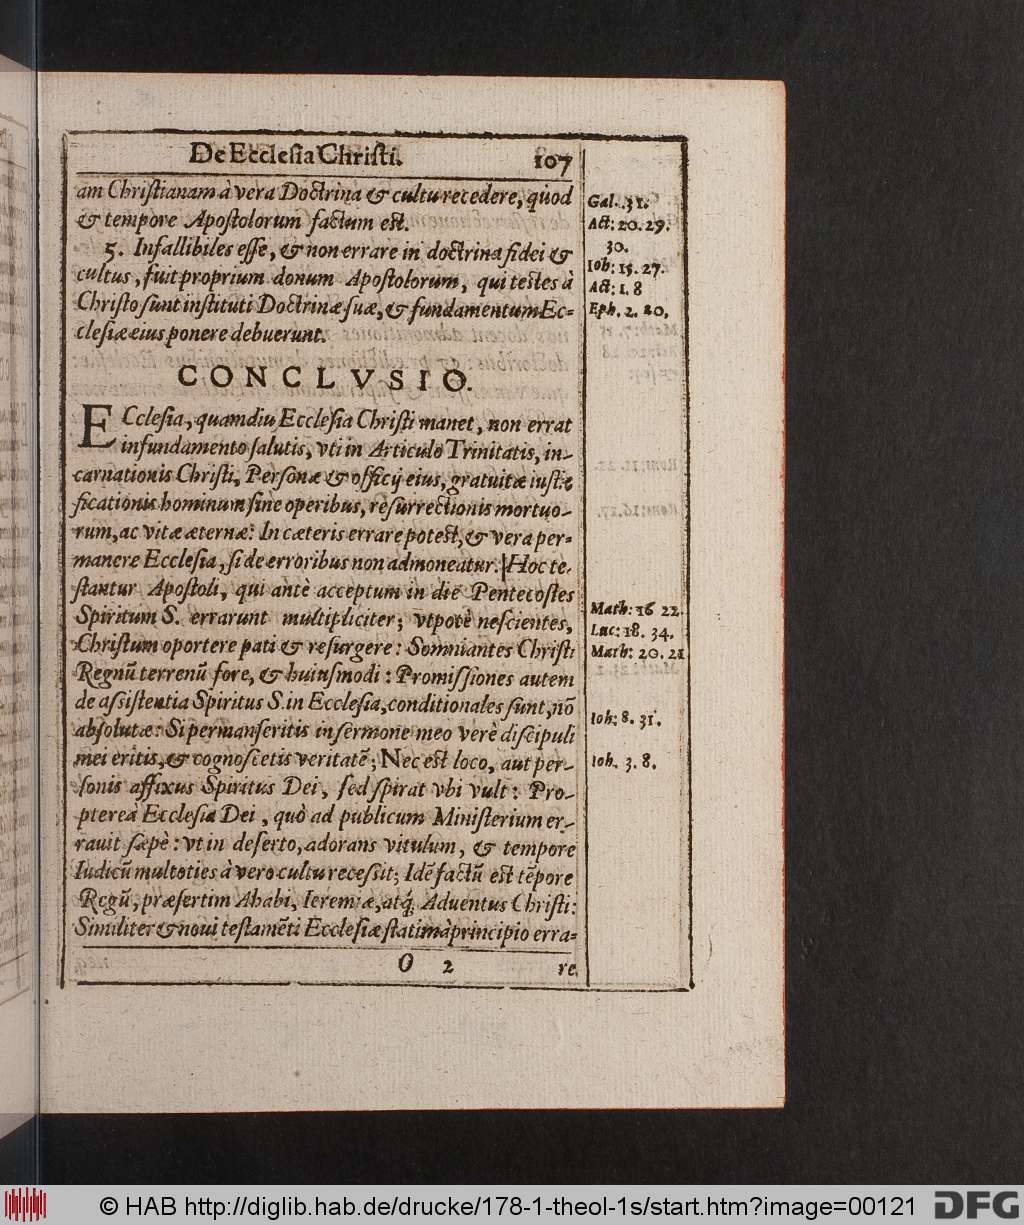 De Ecclesia Christi. 107
am Christianam à vera Doctrina & cultu recedere, quod
& tempore Apostolorum factum est.
5. Infallibiles esse, & non errare in doctrina fidei &
cultus, fuit proprium donum Apostolorum, qui testes à
Christo sunt instituti Doctrinæ suæ, & fundamentum Ec-
clesiæ eius ponere debuerunt.
Gal. 31.
Act: 20. 29.
30.
Ioh: 15. 27.
Act: 1. 8
Eph. 2. 20.
CONCLVSIO.
ECclesia, quamdiu Ecclesia Christi manet, non errat
in fundamento salutis, vti in Articulo Trinitatis, in-
carnationis Christi, Personæ & officij eius, gratuitæ iusti-
ficationis hominum sine operibus, resurrectionis mortuo-
rum, ac vitæ æternæ: In cæteris errare potest, & vera per-
manere Ecclesia, si de erroribus non admoneatur. Hoc te-
stantur Apostoli, qui antè acceptum in die Pentecostes
Spiritum S. errarunt multipliciter; vtpotè nescientes,
Christum oportere pati & resurgere: Somniantes Christi
Regnũ terrenũ fore, & huiusmodi: Promissiones autem
de assistentia Spiritus S. in Ecclesia, conditionales sunt, nõ
absolutæ: Si permanseritis in sermone meo verè discipuli
mei eritis, & cognoscetis veritatẽ; Nec est loco, aut per-
sonis affixus Spiritus Dei, sed spirat vbi vult: Pro-
ptereà Ecclesia Dei, quò ad publicum Ministerium er-
rauit sæpè: vt in deserto, adorans vitulum, & tempore
Iudicũ multoties à vero cultu recessit; Idẽ factũ est tẽpore
Regũ, præsertim Ahabi, Ieremiæ, atq́; Aduentus Christi:
Similiter & noui testamẽti Ecclesiæ statim à principio erra-
Math: 16 22.
Luc: 18. 34.
Math: 20. 21
Ioh: 8. 31.
Ioh. 3. 8.
O 2 re
© HAB http://diglib.hab.de/drucke/178-1-theol-1s/start.htm?image=00121 DFG